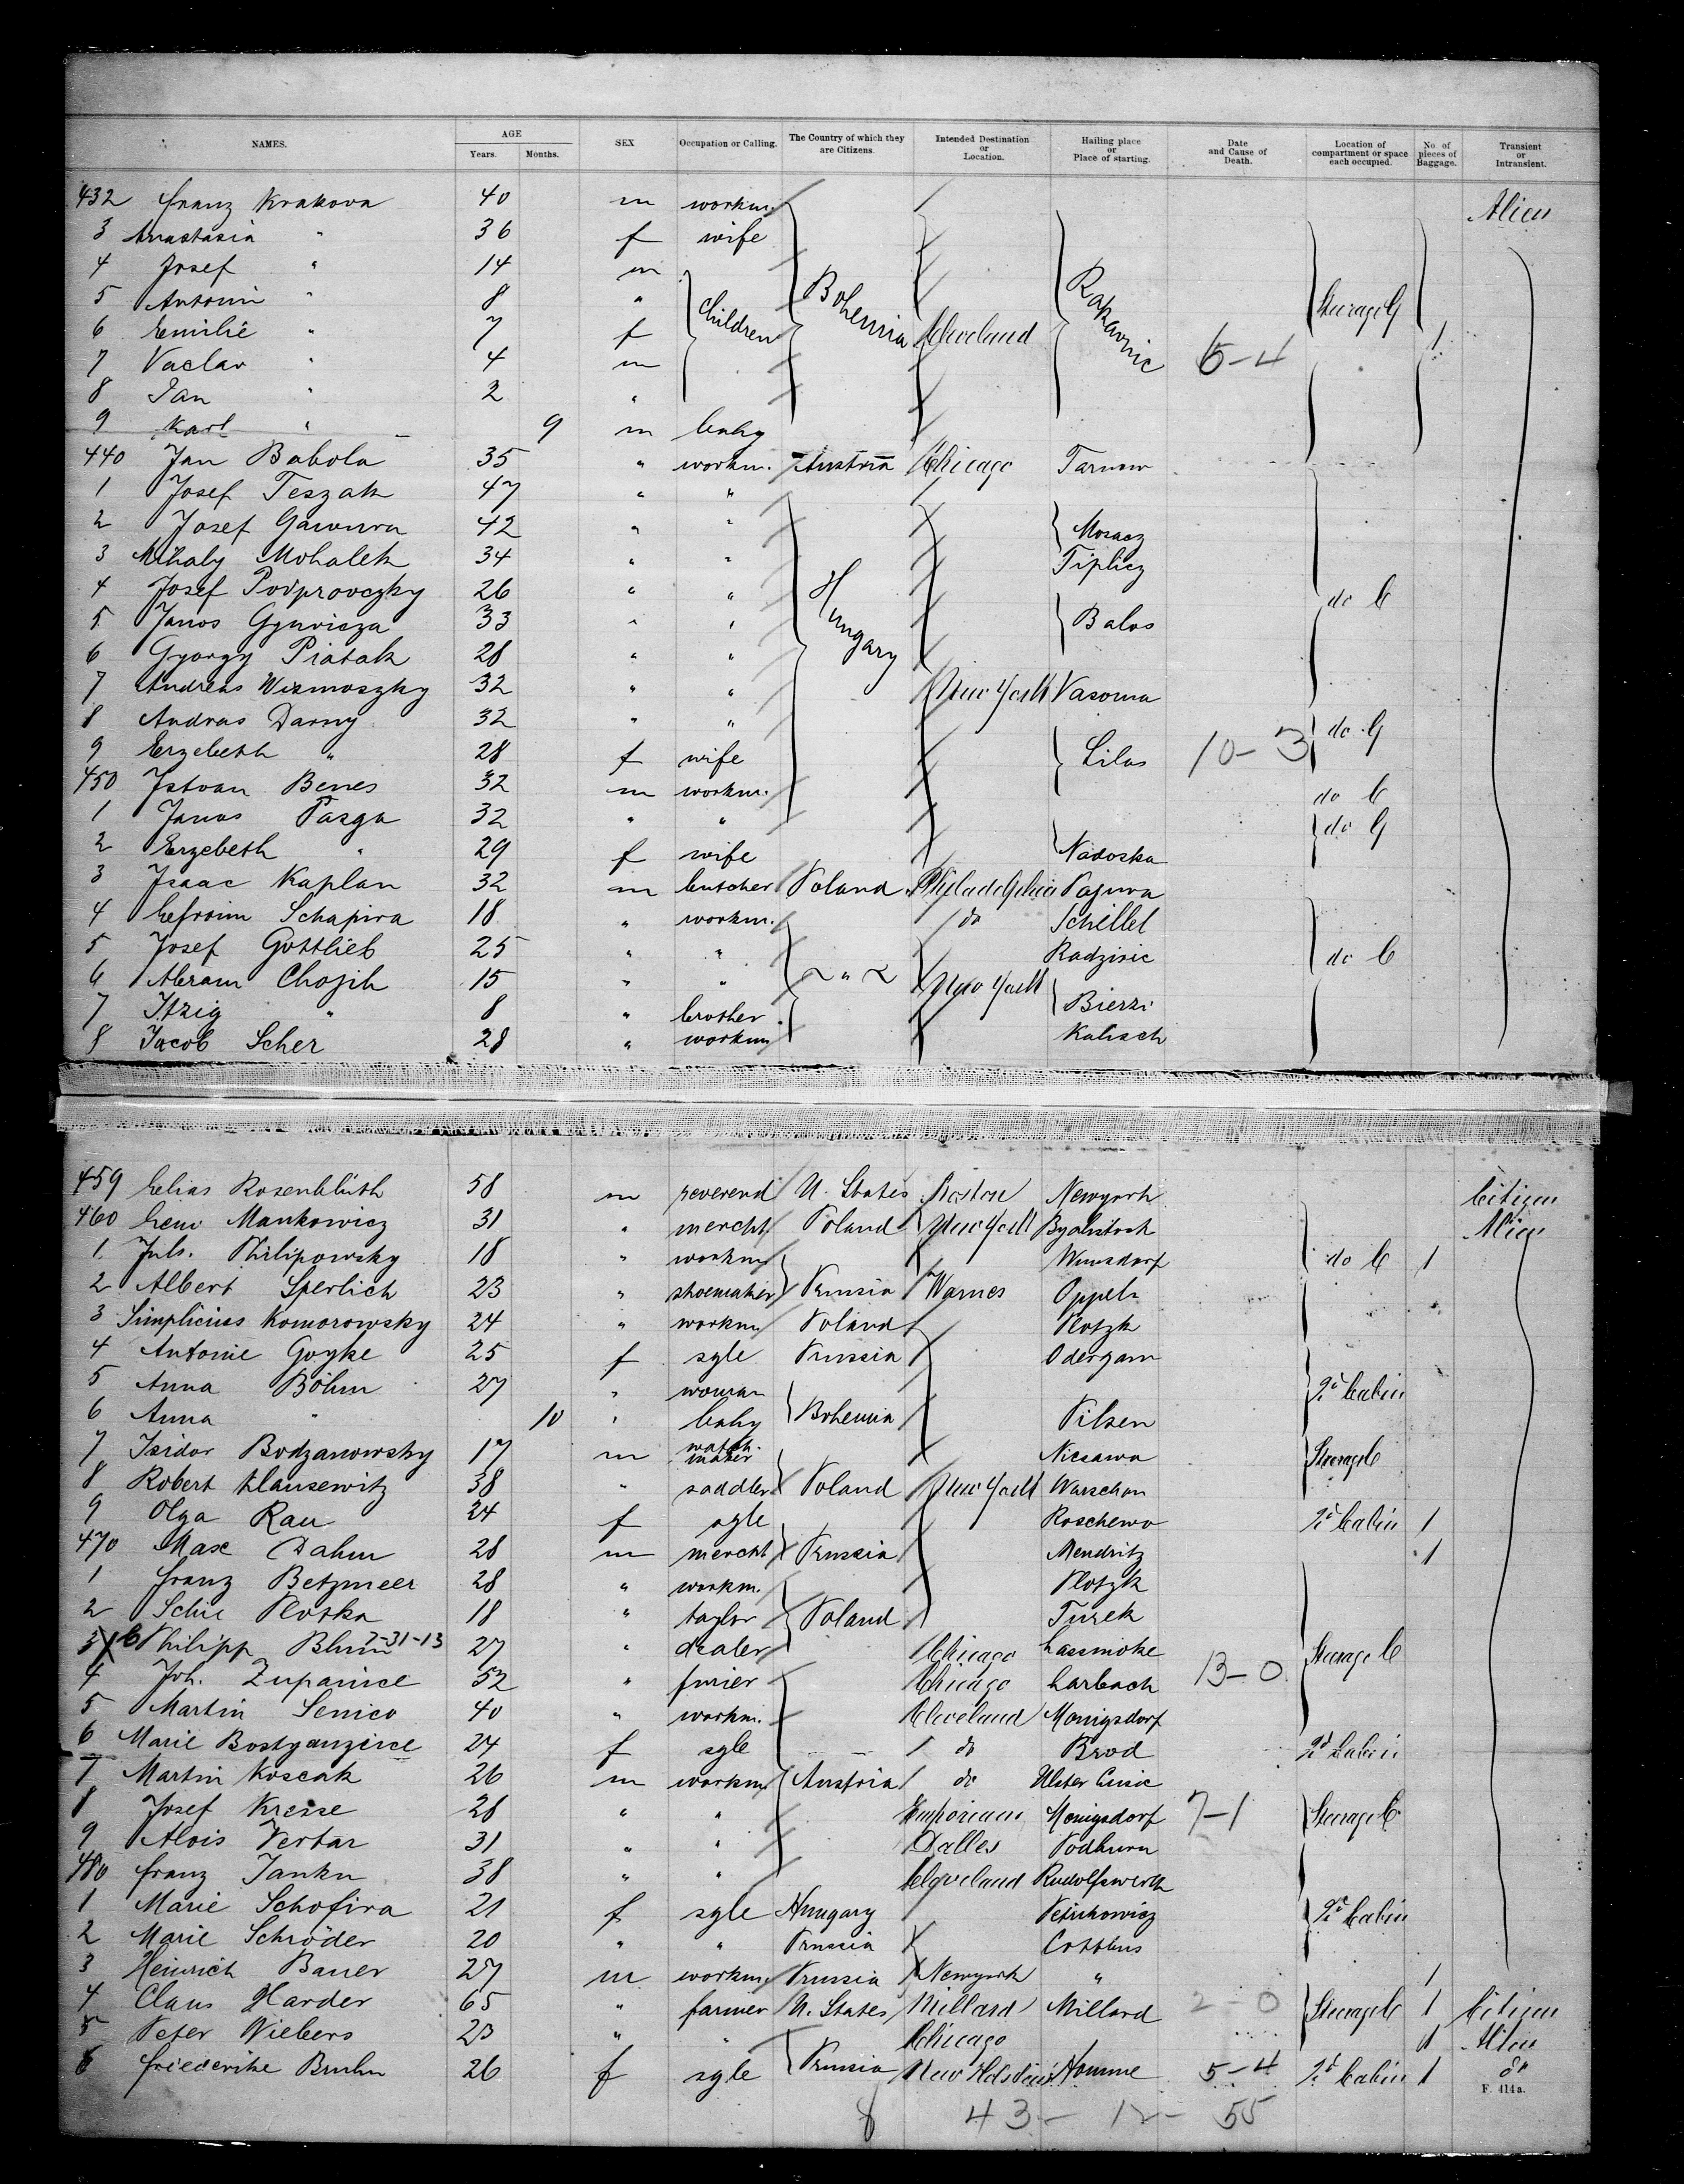 NAMES. AGE Years. Months. SEX Occupation or Calling. The Country of which they are Citizens. Intended Destination or Location. Hailing place or Place of starting. Date and Cause of Death. Location of compartment or space each occupied. No. of pieces of Baggage. Transient or Intransient.
432 Franz Krakova 40 m workm. Alien
3 Anastasia " 36 f wife
4 Josef " 14 m
5 Antonin " 8 " Children Bohemia Rakavnic Steerage G
6 Emilie " 7 f Cleveland 1
7 Vaclav " 4 m 6-4
8 Jan " 2 "
9 Karl " 9 m baby
440 Jan Babola 35 " workm. Austria Chicago Tarnow
1 Josef Teszak 47 " "
2 Josef Gawura 42 " " Mosacz
3 Mihaly Mohalek 34 " " Tiplicz
4 Josef Podprovczky 26 " " Hungary do C
5 Janos Gyuricza 33 " " Balos
6 Gyorgy Piatak 28 " "
7 Andreas Wismoszky 32 " " New York Vasoma
8 Andras Darny 32 " " do G
9 Erzebeth " 28 f wife Lilas 10-3
450 Istvan Benes 32 m workm. do C
1 Janos Pazga 32 " " do G
2 Erzebeth " 29 f wife Nadoska
3 Isaac Kaplan 32 m butcher Poland Philadelphia Pajura
4 Efroim Schapira 18 " workm. do Schillel
5 Josef Gottlieb 25 " " Radzisic do C
6 Abram Chojih 15 " " " New York
7 Itzig " 8 " brother Bierzi
8 Jacob Scher 28 " workm Kalisch
459 Elias Rosenblüth 58 m reverend U. States Boston Newyork Citizen
460 Lew Mankowicz 31 " mercht. Poland New York Byalistock Alien
1 Juls. Philipowsky 18 " workm Wunsdorf do C 1
2 Albert Sperlich 23 " shoemaker Prussia Warnes Oppeln
3 Simplicius Komorowsky 24 " workm Poland Plotzk
4 Antonie Goyke 25 f sgle Prussia Odergam
5 Anna Böhm 27 " woman 2d Cabin
6 Anna " 10 " baby Bohemia Pilsen
7 Isidor Bodzanowsky 17 m watch-maker Niesawa Steerage C
8 Robert Klausewitz 38 " saddler Poland New York Warschau
9 Olga Rau 24 f sgle Roschewo 2d Cabin 1
470 Max Dahm 28 m mercht Prussia Mendritz 1
1 Franz Betzmeer 28 " workm. Plotzk
2 Schie Plotka 18 " taylor Poland Turek
3 X C Philipp Blum 7-31-13 27 " dealer Chicago Lassmoke Steerage C
4 Joh. Zupanice 52 " furier Chicago Larbach 13-0
5 Martin Senico 40 " workm. Cleveland Monigsdorf
6 Marie Bostyanzice 24 f sgle do Brod 2d Cabin
7 Martin Koscak 26 m workm Austria do Unter Cusic
8 Josef Kresse 28 " " Emporium Monigsdorf 7-1 Steerage C
9 Alois Vertar 31 " " Dalles Podhurn
480 Franz Janku 38 " " Cleveland Rudolfswerth
1 Marie Schofira 21 f sgle Hungary Petrikowicz 2d Cabin
2 Marie Schröder 20 " " Prussia Cottbus
3 Heinrich Bauer 27 m workm. Prussia Newyork " 1
4 Claus Harder 65 " farmer U. States Millard Millard 2-0 Steerage C 1 Citizen
5 Peter Wiebers 23 " " Chicago 1 Alien
6 Friederike Bruhn 26 f sgle Prussia New Holstein Homme 5-4 2d Cabin 1 do
F. 414a.
8 43 - 12 - 55